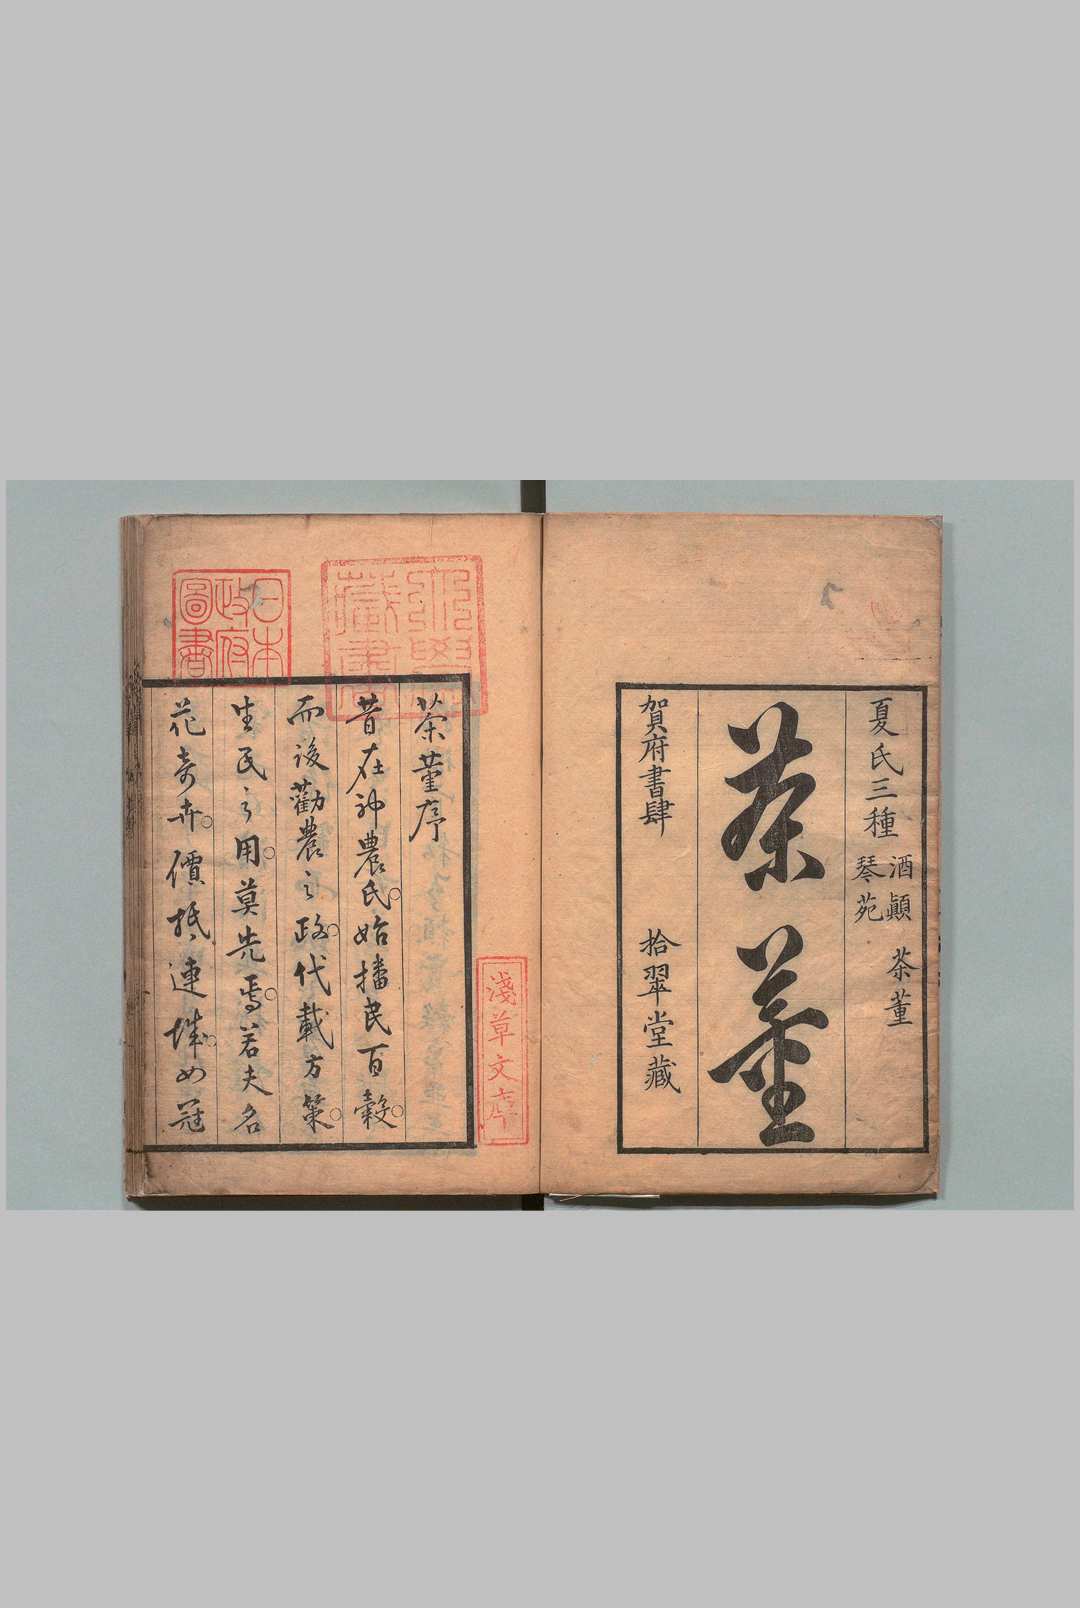 夏氏三種 酒顛 茶董
琴苑
茶董
賀府書肆 拾翠堂藏
淺草文庫
茶董序
昔在神農氏。始播民百穀。
而後勸農之政。代載方策。
生民之用。莫先焉。若夫名
花奇卉。價抵連城。如冠
日本
政府
圖書